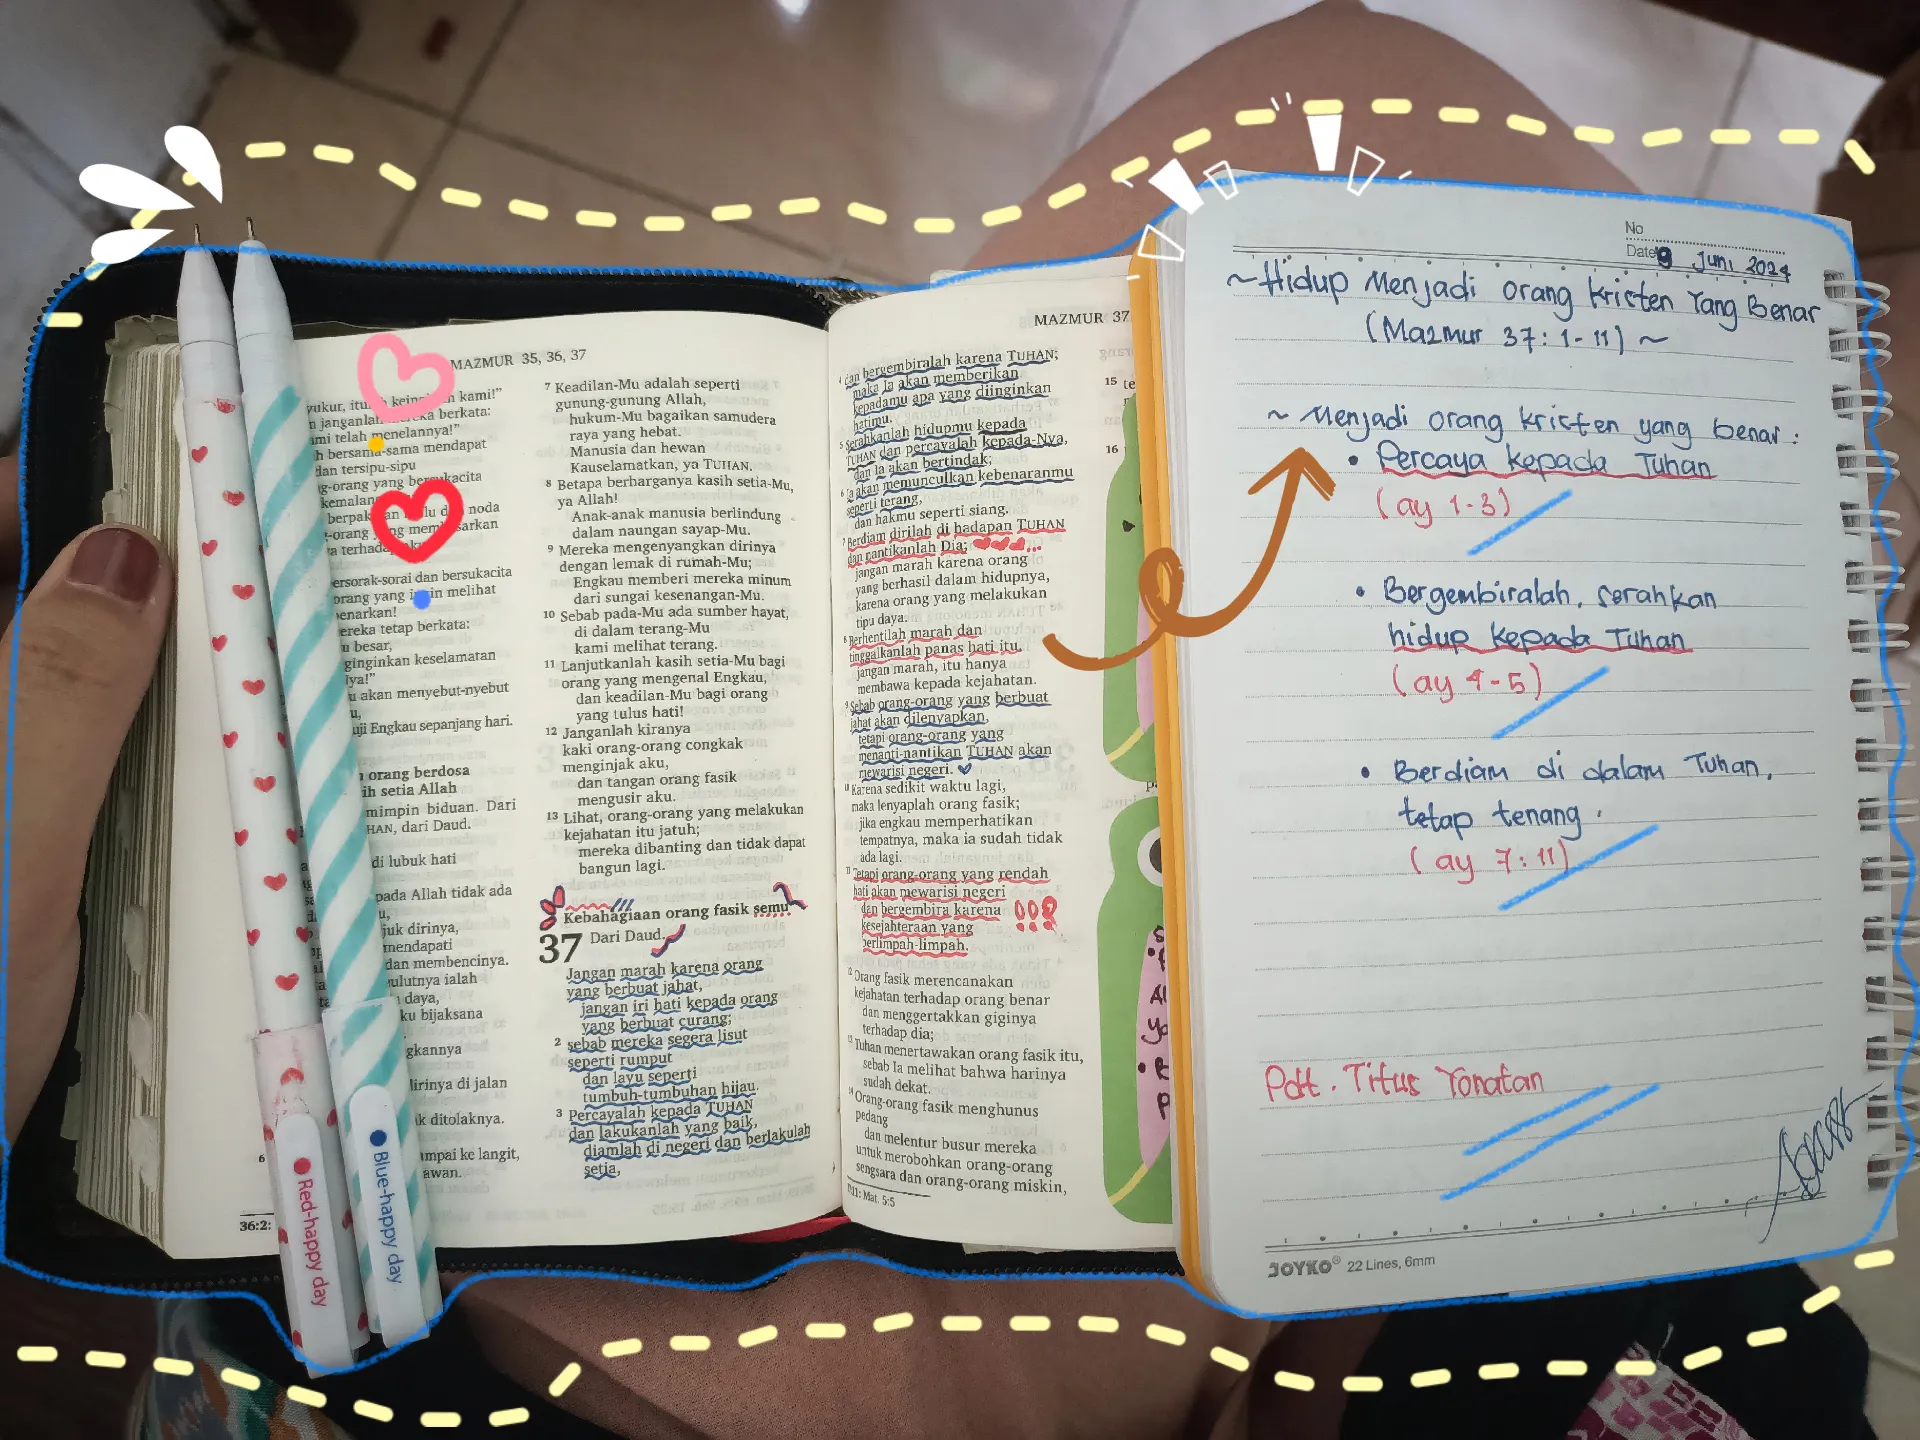 MAZMUR 35, 36, 37
kami!"
n janganlah berkata:
mi telah menelannya!"
h bersama-sama mendapat
dan tersipu-sipu
g-orang yang bersukacita
noda
ersorak-sorai dan bersukacita
orang yang ingin melihat
enarkan!
ereka tetap berkata:
u besar,
ginginkan keselamatan
ya!"
u akan menyebut-nyebut
u,
uji Engkau sepanjang hari.
orang berdosa
ih setia Allah
mimpin biduan. Dari
HAN, dari Daud.
di lubuk hati
pada Allah tidak ada
u,
juk dirinya,
mendapati
dan membencinya.
ulutnya ialah
daya,
ku bijaksana
gkannya
dirinya di jalan
k ditolaknya.
6
mpai ke langit,
awan.
36:2:
7 Keadilan-Mu adalah seperti
gunung-gunung Allah,
hukum-Mu bagaikan samudera
raya yang hebat.
Manusia dan hewan
Kauselamatkan, ya TUHAN.
8 Betapa berharganya kasih setia-Mu,
ya Allah!
Anak-anak manusia berlindung
dalam naungan sayap-Mu.
9 Mereka mengenyangkan dirinya
dengan lemak di rumah-Mu;
Engkau memberi mereka minum
dari sungai kesenangan-Mu.
10 Sebab pada-Mu ada sumber hayat,
di dalam terang-Mu
kami melihat terang.
11 Lanjutkanlah kasih setia-Mu bagi
orang yang mengenal Engkau,
dan keadilan-Mu bagi orang
yang tulus hati!
12 Janganlah kiranya
kaki orang-orang congkak
menginjak aku,
dan tangan orang fasik
mengusir aku.
13 Lihat, orang-orang yang melakukan
kejahatan itu jatuh;
mereka dibanting dan tidak dapat
bangun lagi.
Kebahagiaan orang fasik semu
37 Dari Daud.
Jangan marah karena orang
yang berbuat jahat,
jangan iri hati kepada orang
yang berbuat curang;
2 sebab mereka segera lisut
seperti rumput
dan layu seperti
tumbuh-tumbuhan hijau.
3 Percayalah kepada TUHAN
dan lakukanlah yang baik,
diamlah di negeri dan berlakulah
setia,
MAZMUR 37
4 dan bergembiralah karena TUHAN;
maka Ia akan memberikan
kepadamu apa yang diinginkan
hatimu.
5 Serahkanlah hidupmu kepada
TUHAN dan percayalah kepada-Nya,
dan Ia akan bertindak;
6 Ia akan memunculkan kebenaranmu
seperti terang,
dan hakmu seperti siang.
7 Berdiam dirilah di hadapan TUHAN
dan nantikanlah Dia;
jangan marah karena orang
yang berhasil dalam hidupnya,
karena orang yang melakukan
tipu daya.
8 Berhentilah marah dan
tinggalkanlah panas hati itu,
jangan marah, itu hanya
membawa kepada kejahatan.
9 Sebab orang-orang yang berbuat
jahat akan dilenyapkan,
tetapi orang-orang yang
menanti-nantikan TUHAN akan
mewarisi negeri.
10 Karena sedikit waktu lagi,
maka lenyaplah orang fasik;
jika engkau memperhatikan
tempatnya, maka ia sudah tidak
ada lagi.
11 Tetapi orang-orang yang rendah
hati akan mewarisi negeri
dan bergembira karena
kesejahteraan yang
berlimpah-limpah.
12 Orang fasik merencanakan
kejahatan terhadap orang benar
dan menggertakkan giginya
terhadap dia;
13 Tuhan menertawakan orang fasik itu,
sebab Ia melihat bahwa harinya
sudah dekat.
14 Orang-orang fasik menghunus
pedang
dan melentur busur mereka
untuk merobohkan orang-orang
sengsara dan orang-orang miskin,
37:11: Mat. 5:5
15 te
16
Red-happy day
Blue-happy day
No
Date 9 Juni 2024
~Hidup Menjadi orang Kristen Yang Benar
(Mazmur 37: 1-11) ~
~ Menjadi orang kristen yang benar:
• Percaya kepada Tuhan
(ay 1-3)
• Bergembiralah, serahkan
hidup kepada Tuhan
(ay 4-5)
• Berdiam di dalam Tuhan,
tetap tenang.
(ay 7:11)
Pdt. Titus Yonatan
JOYKO® 22 Lines, 6mm